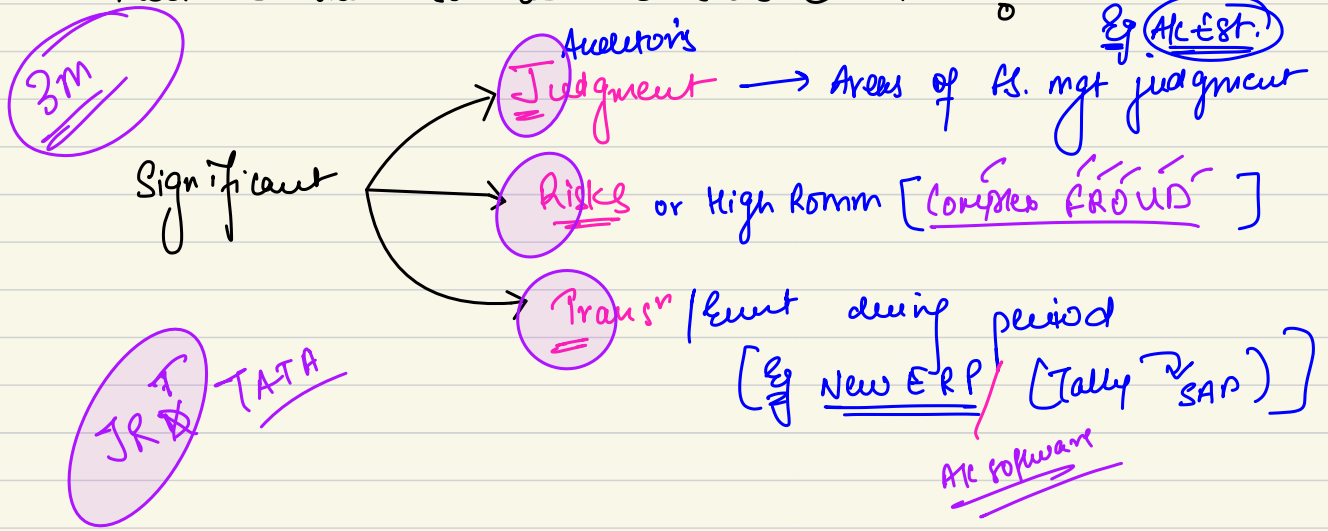 Eg (A/c Est.)
3m
Auditor's
Judgment → Areas of fs. mgt judgment
Significant
Risks or High Romm [Complex FROUD]
Transn / Event during period
[Eg New ERP / (Tally → SAP)]
A/c software
JRT TATA